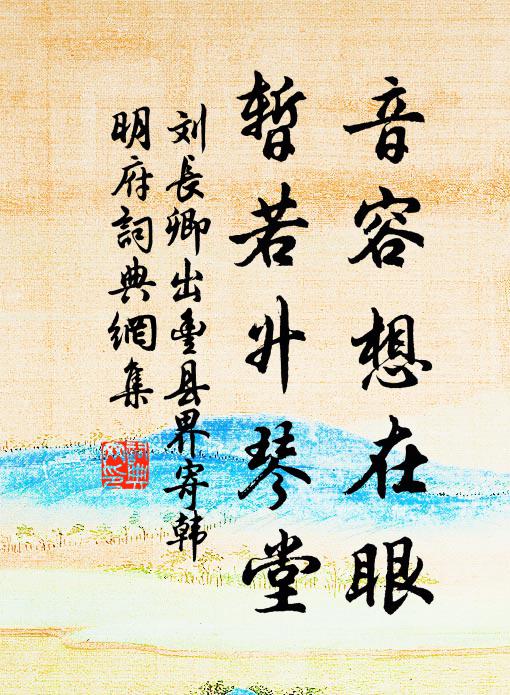 音容想在眼
暫若升琴堂
刘長卿出豊县界寄韩
明府詞典網集